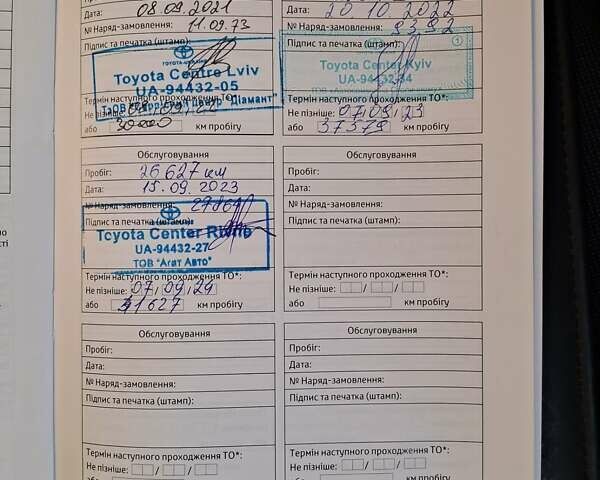 Дата: 08.09.2021
№ Наряд-замовлення: 11.09.73
Підпис та печатка (штамп):
TOYOTA
Toyota Centre Lviv
UA-94432-05
"Діамант"
Термін наступного проходження ТО*:
Не пізніше:
або 30000 км пробігу
Дата: 20.10.2022
№ Наряд-замовлення: 93,92
Підпис та печатка (штамп): 1
Toyota Center Kyiv
UA-94432-34
Термін наступного проходження ТО*:
Не пізніше: 07/09/23
або 37379 км пробігу
Обслуговування
Пробіг: 26 627 км
Дата: 15.09.2023
№ Наряд-замовлення: 27864
Підпис та печатка (штамп):
TOYOTA
Toyota Center Rivne
UA-94432-27
ТОВ "Агат Авто"
Термін наступного проходження ТО*:
Не пізніше: 07/09/24
або 41627 км пробігу
Обслуговування
Пробіг:
Дата:
№ Наряд-замовлення:
Підпис та печатка (штамп):
Термін наступного проходження ТО*:
Не пізніше: / /
або км пробігу
Обслуговування
Пробіг:
Дата:
№ Наряд-замовлення:
Підпис та печатка (штамп):
Термін наступного проходження ТО*:
Не пізніше: / /
Обслуговування
Пробіг:
Дата:
№ Наряд-замовлення:
Підпис та печатка (штамп):
Термін наступного проходження ТО*:
Не пізніше: / /